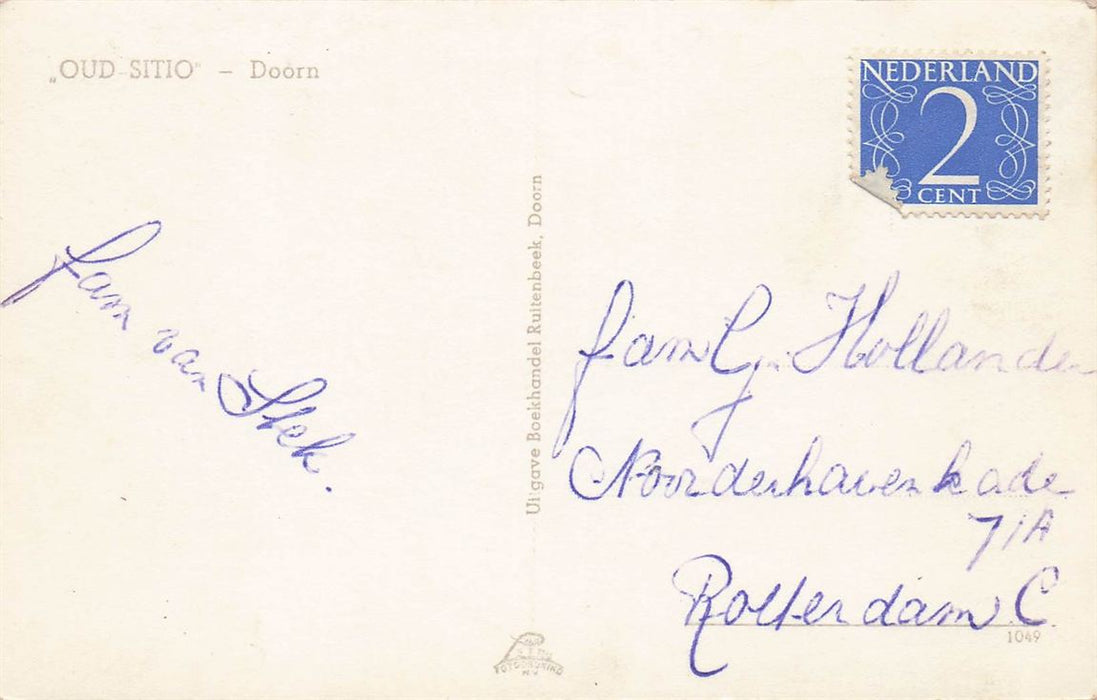 „OUD SITIO" – Doorn
NEDERLAND
2
CENT
fam van Stek.
Uitgave Boekhandel Ruitenbeek, Doorn
fam G. Hollander
Noorderhavenkade
71A
Rotterdam C.
1049